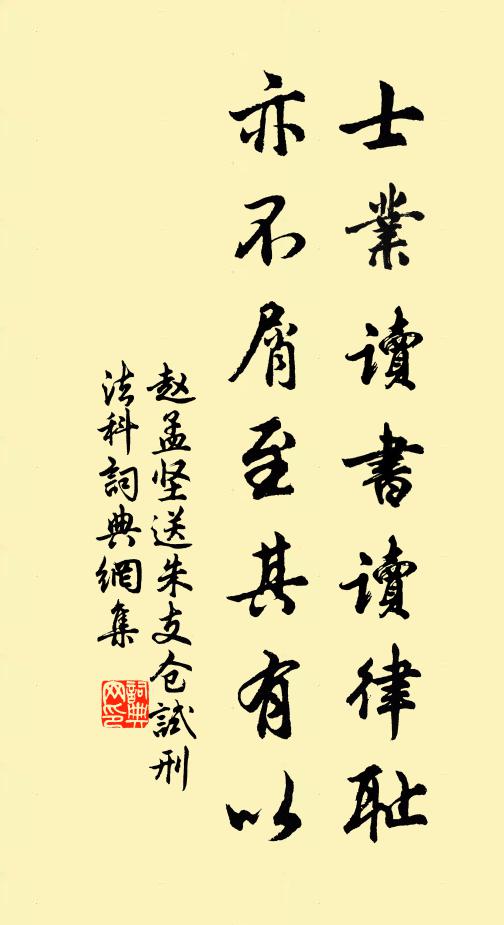 士業讀書讀律耻
亦不屑至其有以
赵孟坚送朱支仓試刑
法科詞典網集
詞典
网印